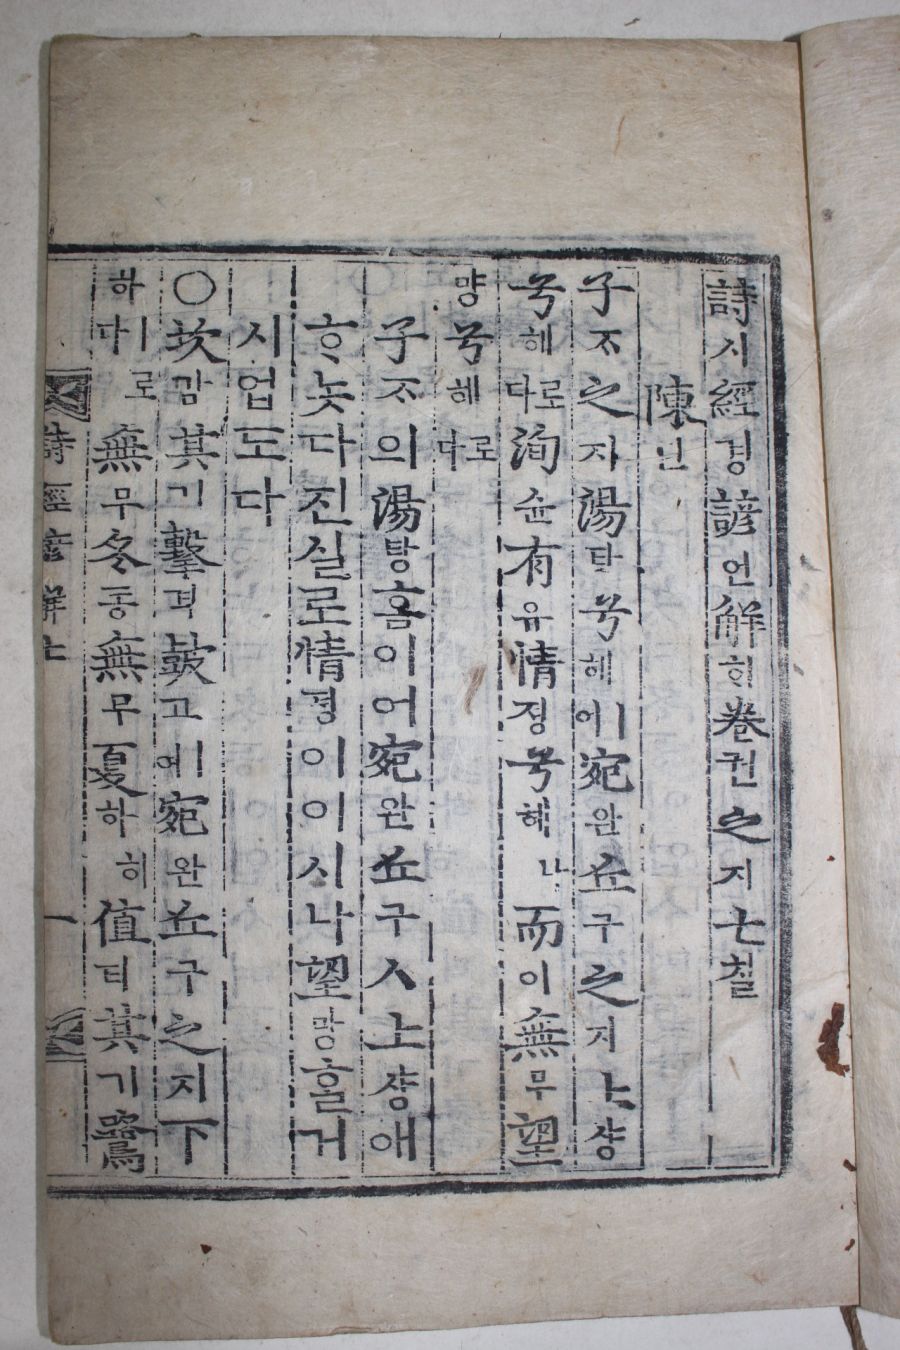 詩시經경諺언解ᄒᆡ卷권之지七칠
陳딘
子ᄌᆞ之지湯탕兮혜ㅣ여宛완丘구之지上샹
兮혜로다洵슌有유情졍兮혜나而이無무望
망兮혜로다
子ᄌᆞ의湯탕홈이여宛완丘구人上샹애
ᄒᆞ놋다진실로情졍이이시나望망홀거
시업도다
○坎감其기擊격鼓고ㅣ여宛완丘구之지下
하ㅣ로다無무冬동無무夏하히值티其기鷺
詩經諺解七
一